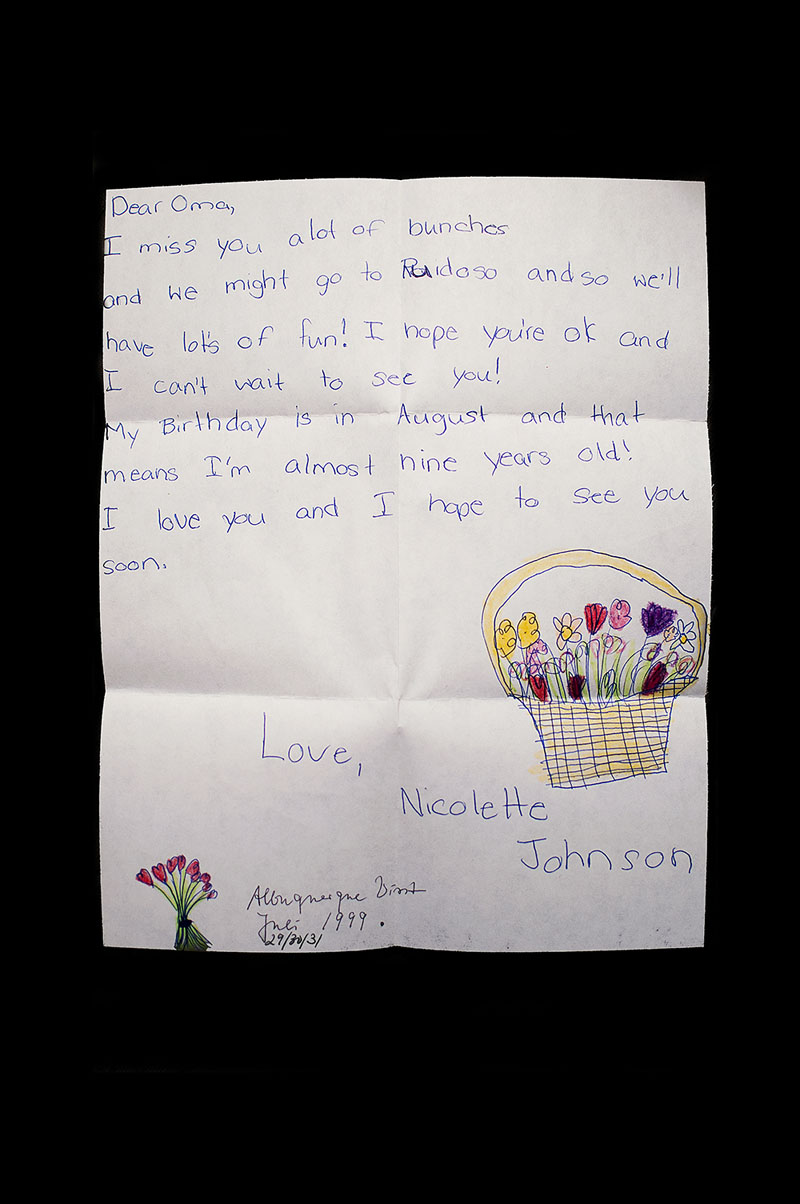 Dear Oma,
I miss you alot of bunches
and we might go to Ruidoso and so we'll
have lot's of fun! I hope you're ok and
I can't wait to see you!
My Birthday is in August and that
means I'm almost nine years old!
I love you and I hope to see you
soon.
Love,
Nicolette
Johnson
Albuquerque
Juli 1999.
29/30/31